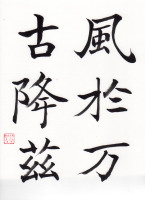 風於万
古降茲